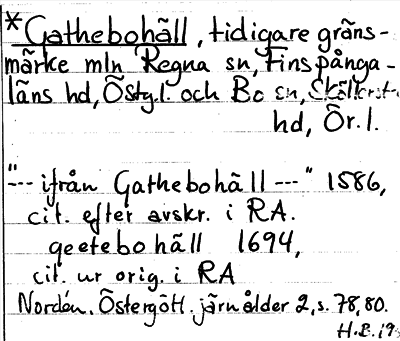 *Gathebohäll, tidigare gräns-
märke mln Regna sn, Finspånga-
läns hd, Östg.l. och Bo sn,
hd, Ör.l.
"--- ifrån Gathebohäll ---" 1586,
cit. efter avskr. i RA.
geetebohäll 1694,
cit. ur orig. i RA
Nordén. Östergötl. järnålder 2, s. 78, 80.
H.B. 19